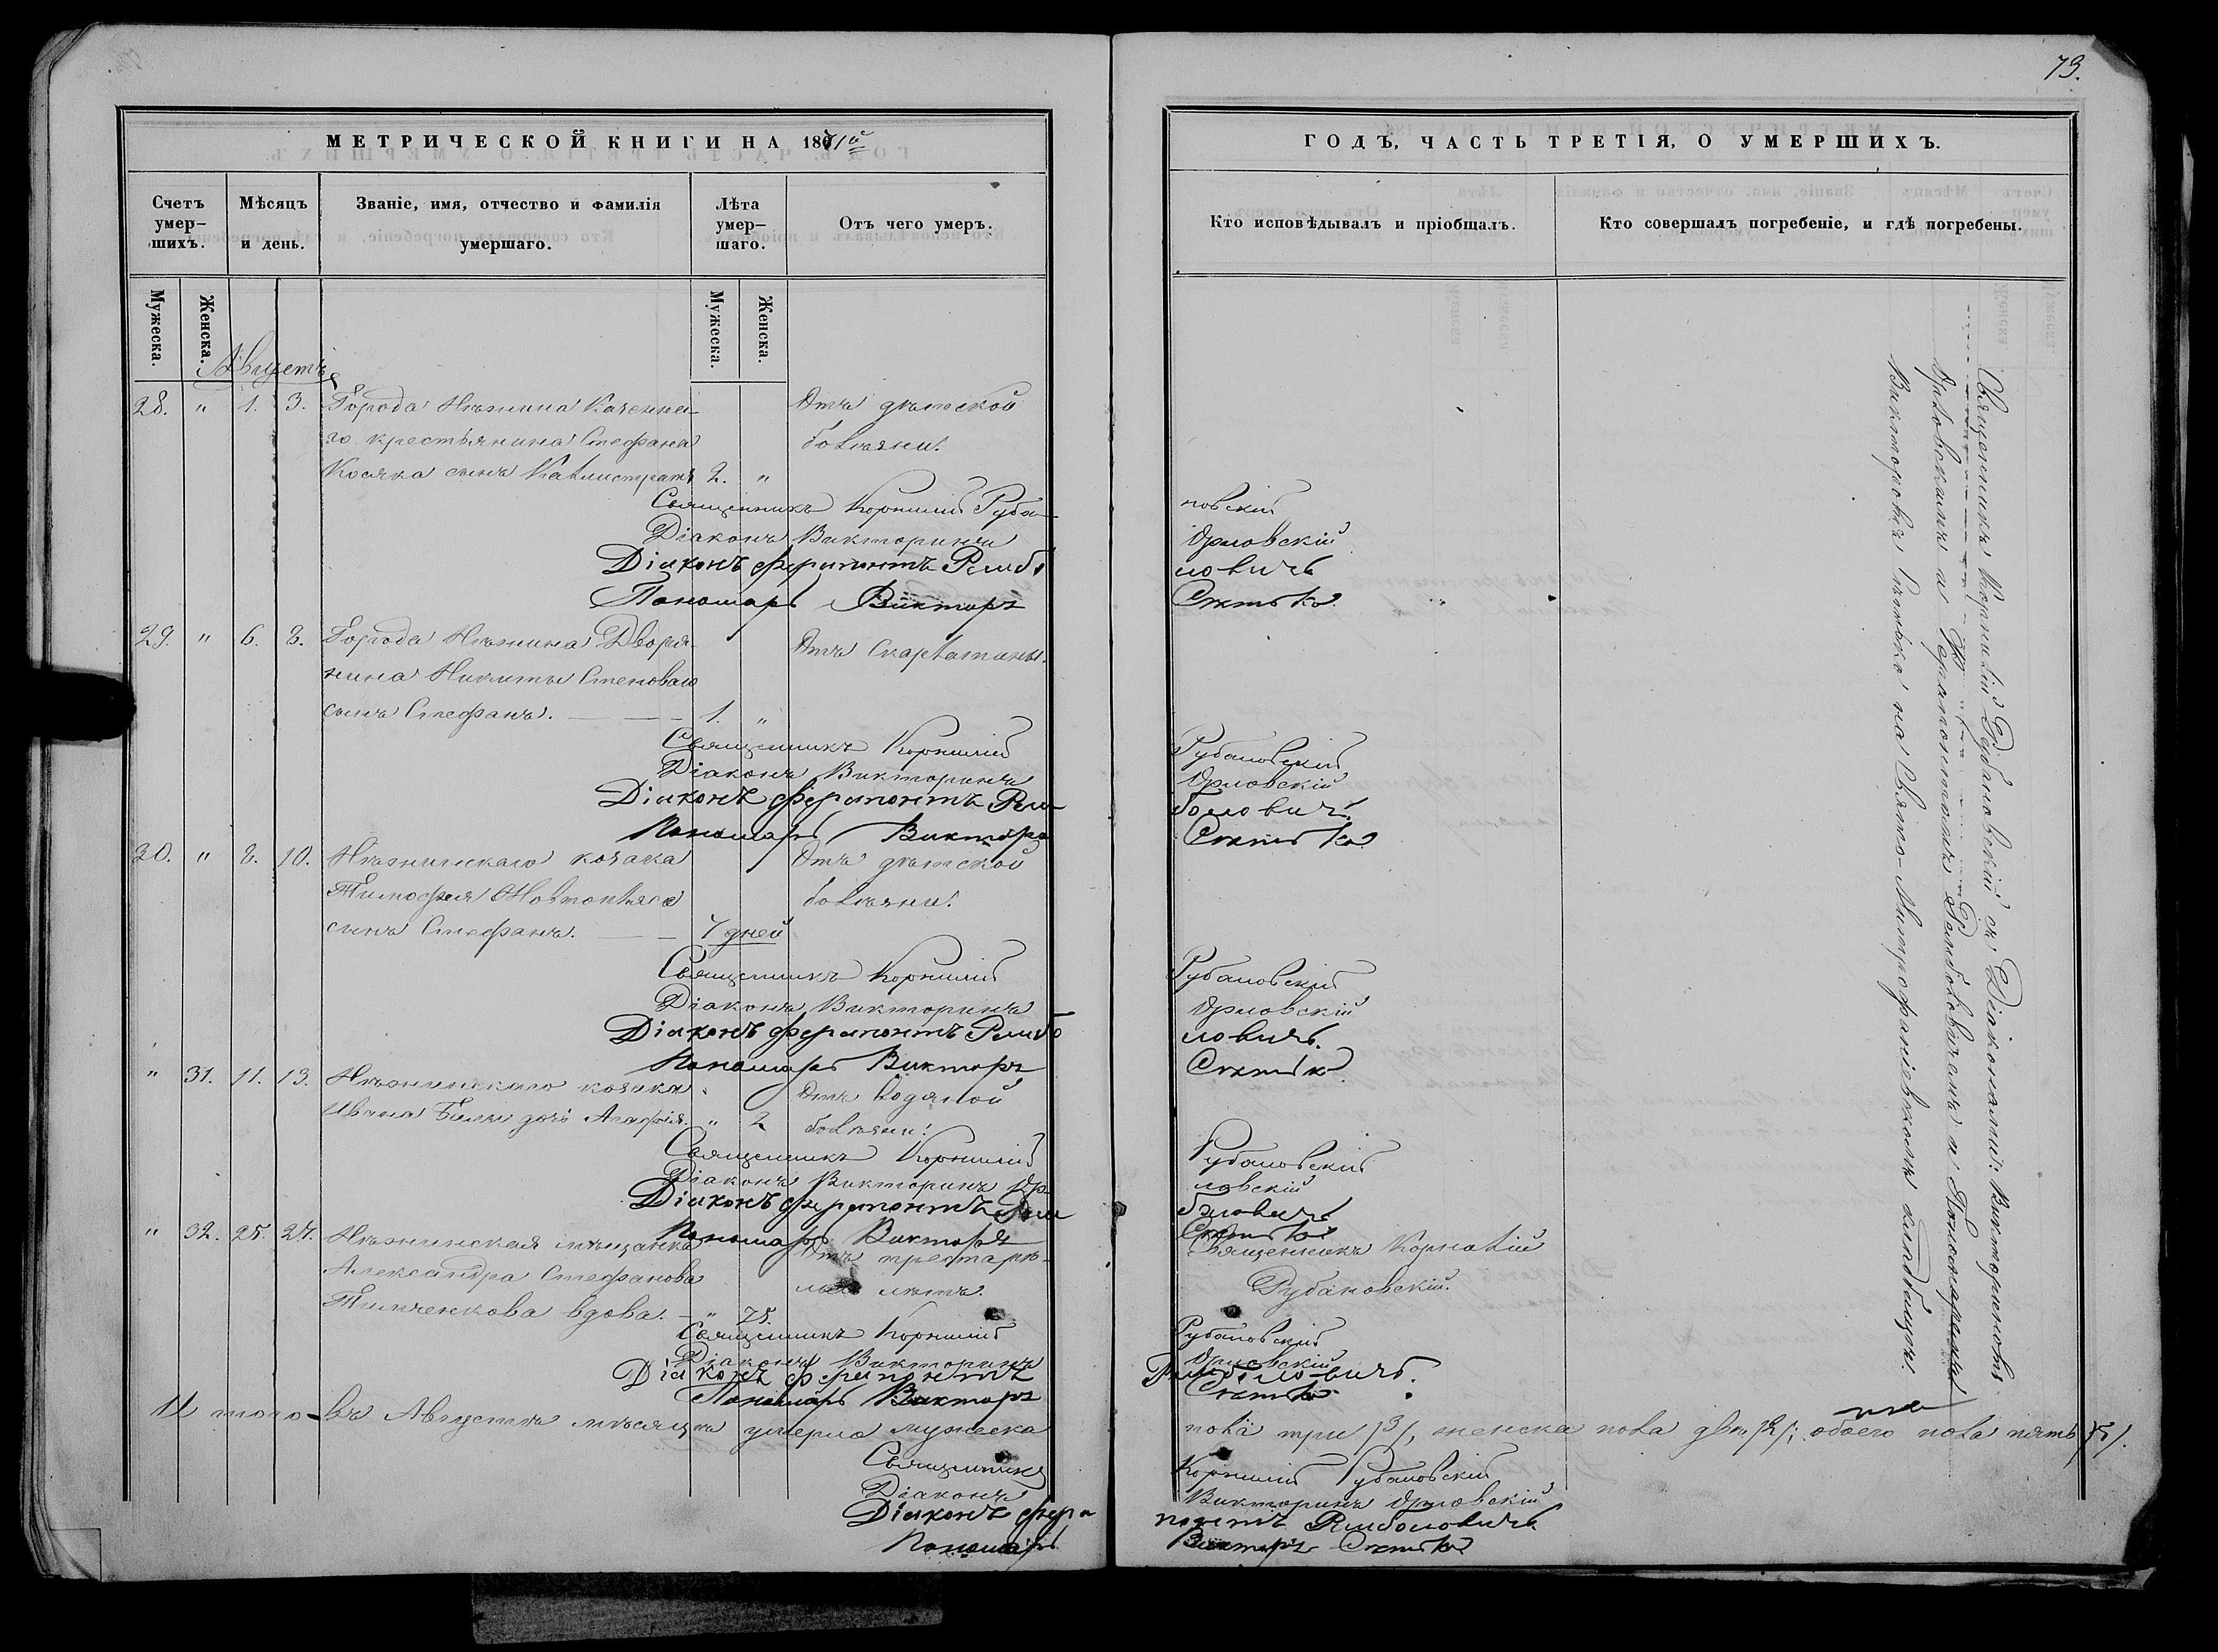 73.
МЕТРИЧЕСКОЙ КНИГИ НА 1871й
ГОДЪ, ЧАСТЬ ТРЕТІЯ, О УМЕРШИХЪ.
Счетъ умер-шихъ.
Мѣсяцъ и день.
Званіе, имя, отчество и фамилія умершаго.
Лѣта умер-шаго.
Отъ чего умеръ.
Кто исповѣдывалъ и пріобщалъ.
Кто совершалъ погребеніе, и гдѣ погребены.
Мужеска.
Женска.
Мужеска.
Женска.
Августъ
28. " 1. 3. Города Нѣжина Казенна- Отъ дѣтской
го крестьянина Стефана болѣзни.
Косяка сынъ Каллистратъ 2. "
Священникъ Корнилій Руба- новскій
Діаконъ Викторинъ Орловскій
Діаконъ Ферапонтъ Рембо ловичъ
Пономарь Викторъ
29. " 6. 8. Города Нѣжина Дворя- Отъ Скарлатины.
нина Никиты Степоваго
сынъ Стефанъ. 1. "
Священникъ Корнилій Рубановскій
Діаконъ Викторинъ Орловскій
Діаконъ Ферапонтъ Рем- боловичъ
Пономарь Викторъ
30. " 8. 10. Нѣжинскаго козака Отъ дѣтской
Тимофея болѣзни.
сынъ Стефанъ. 7 дней
Священникъ Корнилій Рубановскій
Діаконъ Викторинъ Орловскій
Діаконъ Ферапонтъ Рембо ловичъ.
Пономарь Викторъ
" 31. 11. 13. Нѣжинскаго козака Отъ водяной
Ивана дочь Агафія. " 2 болѣзни.
Священникъ Корнилій Рубановскій
Діаконъ Викторинъ Ор- ловскій
Діаконъ Ферапонтъ Рем боловичъ
Пономарь Викторъ
" 32. 25. 27. Нѣжинская мѣщанка Отъ престарѣ- Священникъ Корнилій
Александра Стефанова лыхъ лѣтъ. Рубановскій.
Тимченкова вдова. " 75.
Священникъ Корнилій Рубановскій
Діаконъ Викторинъ Орловскій
Діаконъ Ферапонтъ Ремболовичъ.
Пономарь Викторъ
И того въ Августѣ мѣсяцѣ умерло мужеска пола три /3/, женска пола два /2/; обоего пола пять /5/.
Священникъ Корнилій Рубановскій
Діаконъ Викторинъ Орловскій
Діаконъ Ферапонтъ Ремболовичъ
Пономарь Викторъ
Священникъ Корнилій Рубановскій съ Діаконами: Викториномъ
Орловскимъ и Ферапонтомъ Ремболовичемъ и Пономаремъ
Викторомъ на Свято-Митрофаніевскомъ кладбищѣ.